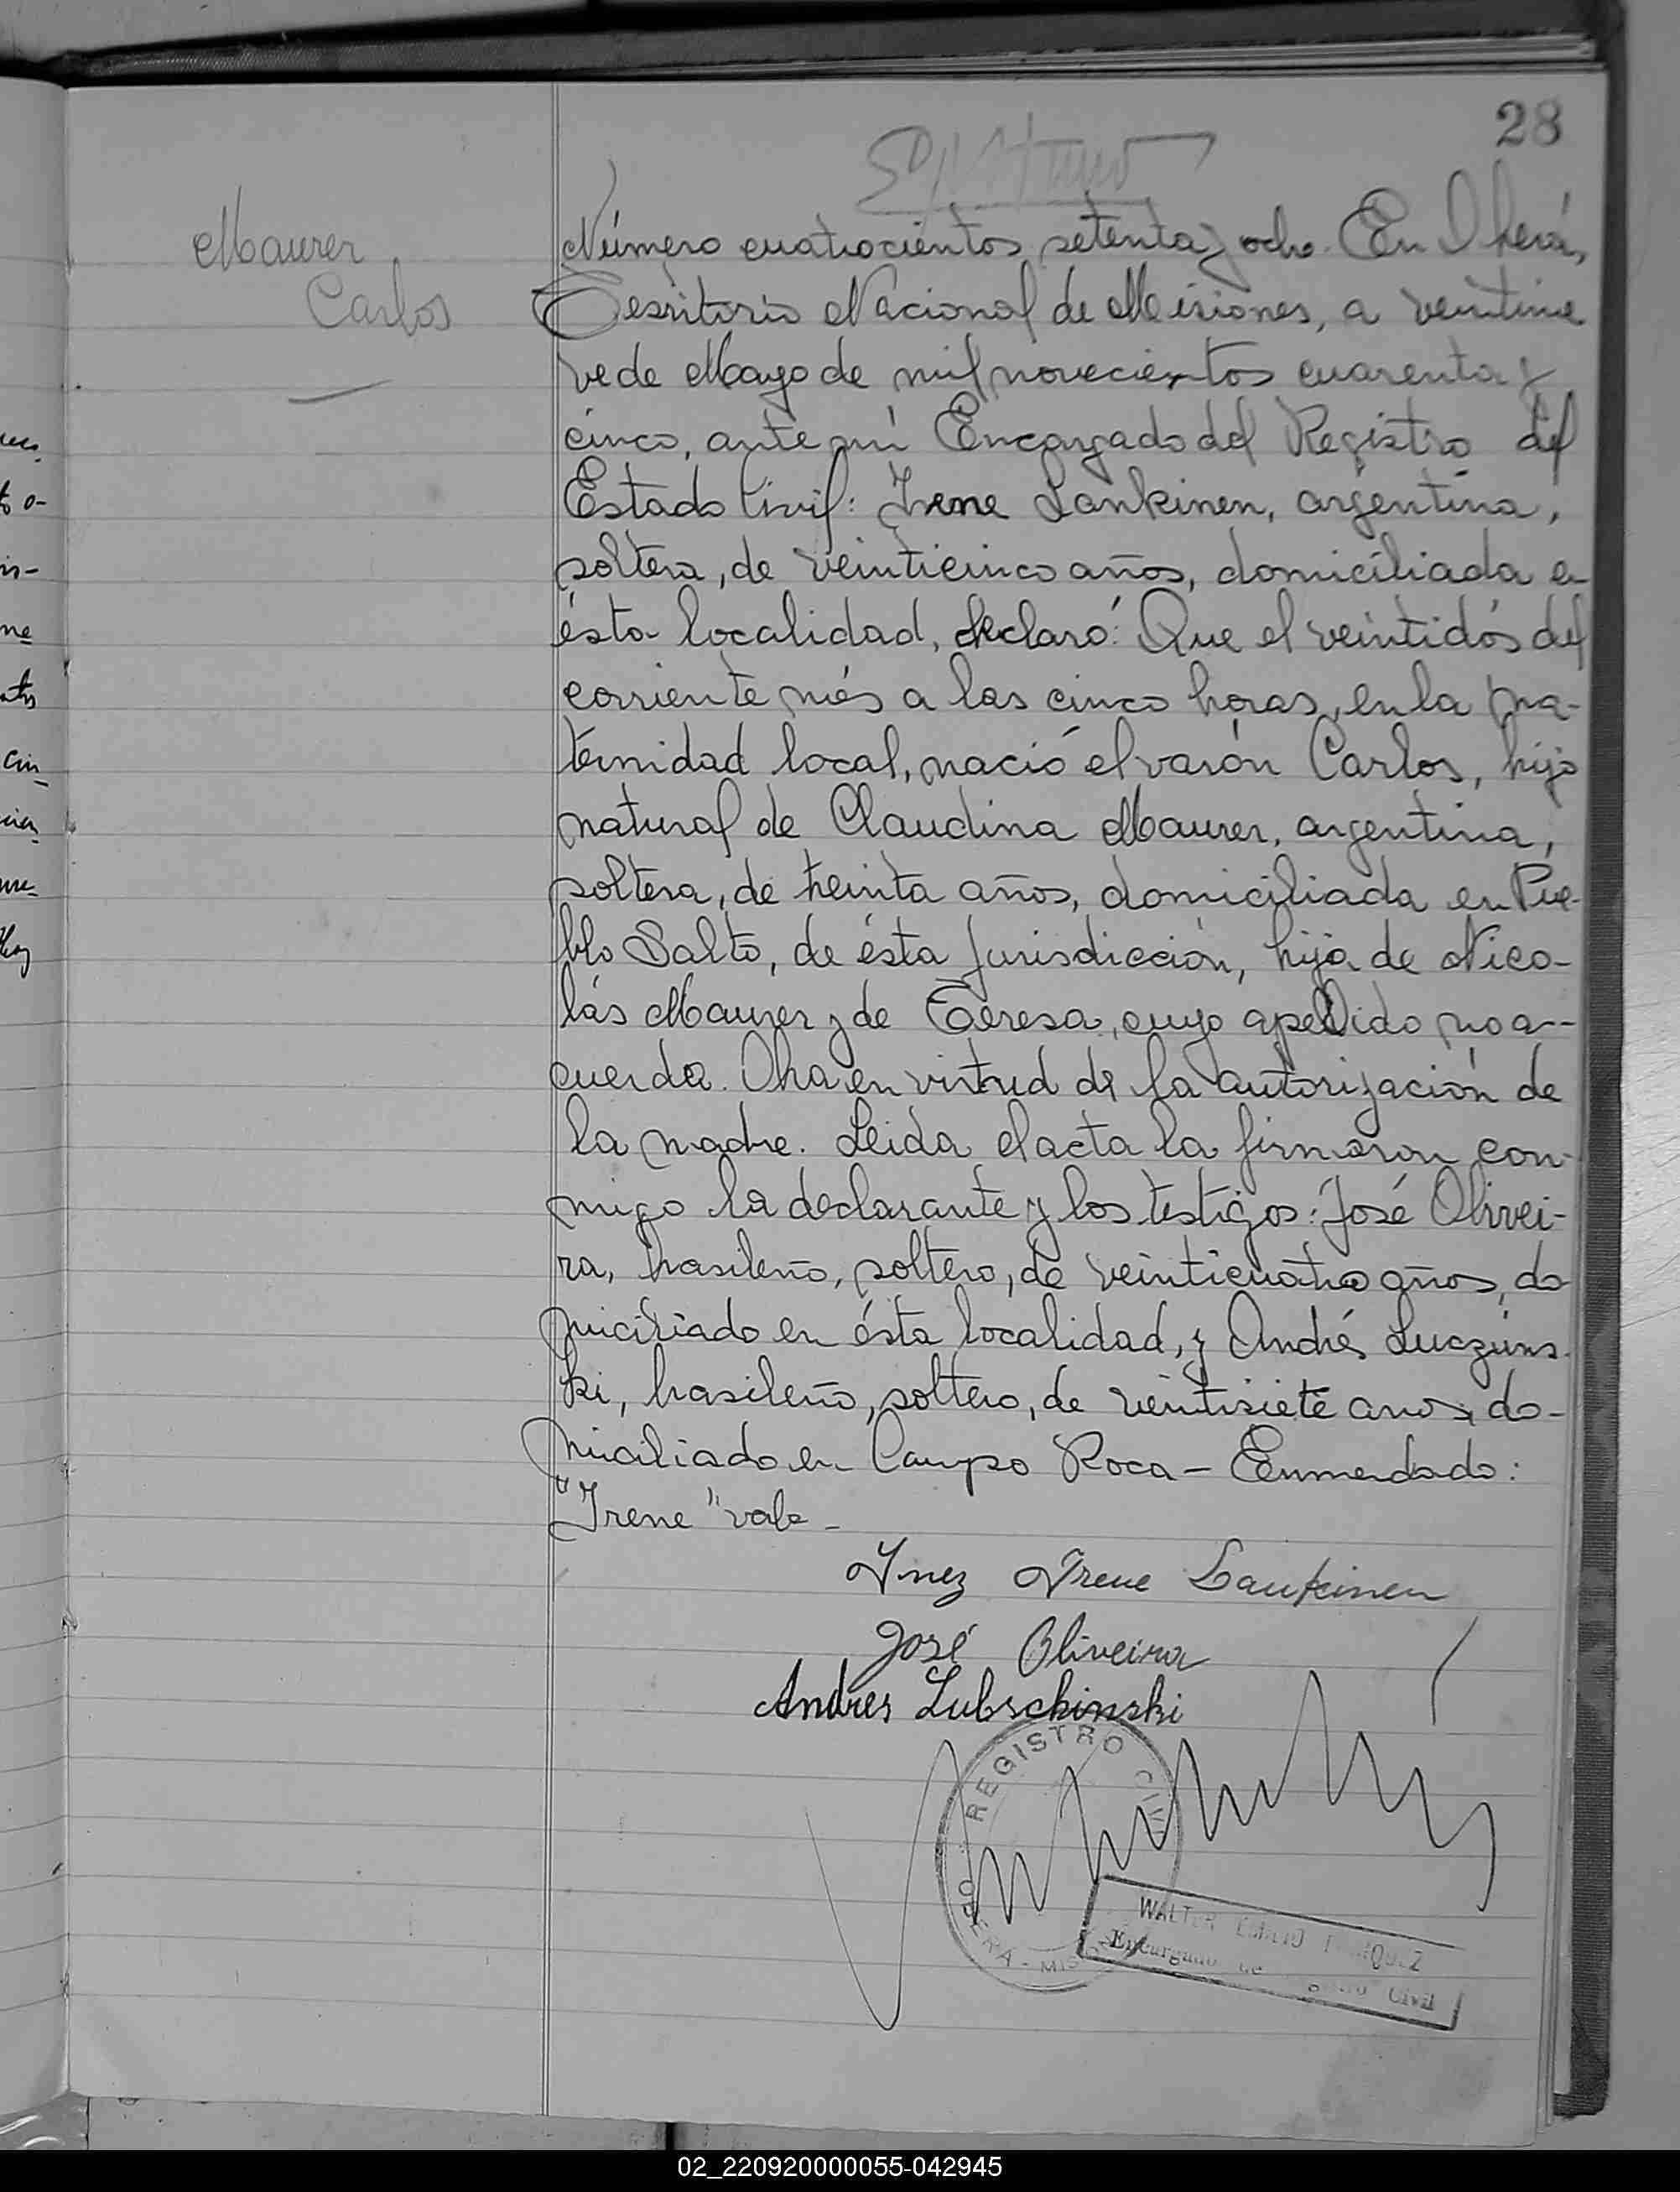 28
Maurer
Carlos
Número cuatrocientos setenta y ocho. En Oberá,
Territorio Nacional de Misiones, a veintinue
ve de Mayo de mil novecientos cuarenta y
cinco, ante mí Encargado del Registro del
Estado Civil: Irene Lankinen, argentina,
soltera, de veinticinco años, domiciliada en
ésta localidad, declaró: Que el veintidós del
corriente més a las cinco horas, en la ma-
ternidad local, nació el varón Carlos, hijo
natural de Claudina Maurer, argentina,
soltera, de treinta años, domiciliada en Pue-
blo Salto, de ésta Jurisdicción, hija de Nico-
lás Maurer y de Teresa, cuyo apellido no a-
cuerda. Obra en virtud de la autorización de
la madre. Leida el acta la firmaron con-
migo la declarante y los testigos: José Olivei-
ra, brasileño, soltero, de veinticuatro años, do
miciliado en ésta localidad, y Andrés Luczins-
ki, brasileño, soltero, de veintisiete anos, do-
miciliado en Campo Roca - Enmendado:
"Irene" vale -
Ynez Irene Laukinen
José Oliveira
Andres Lubschinski
REGISTRO CIVIL
OBERA - MIS
WALTER EMILIO
Encargado de Registro Civil
02_220920000055-042945